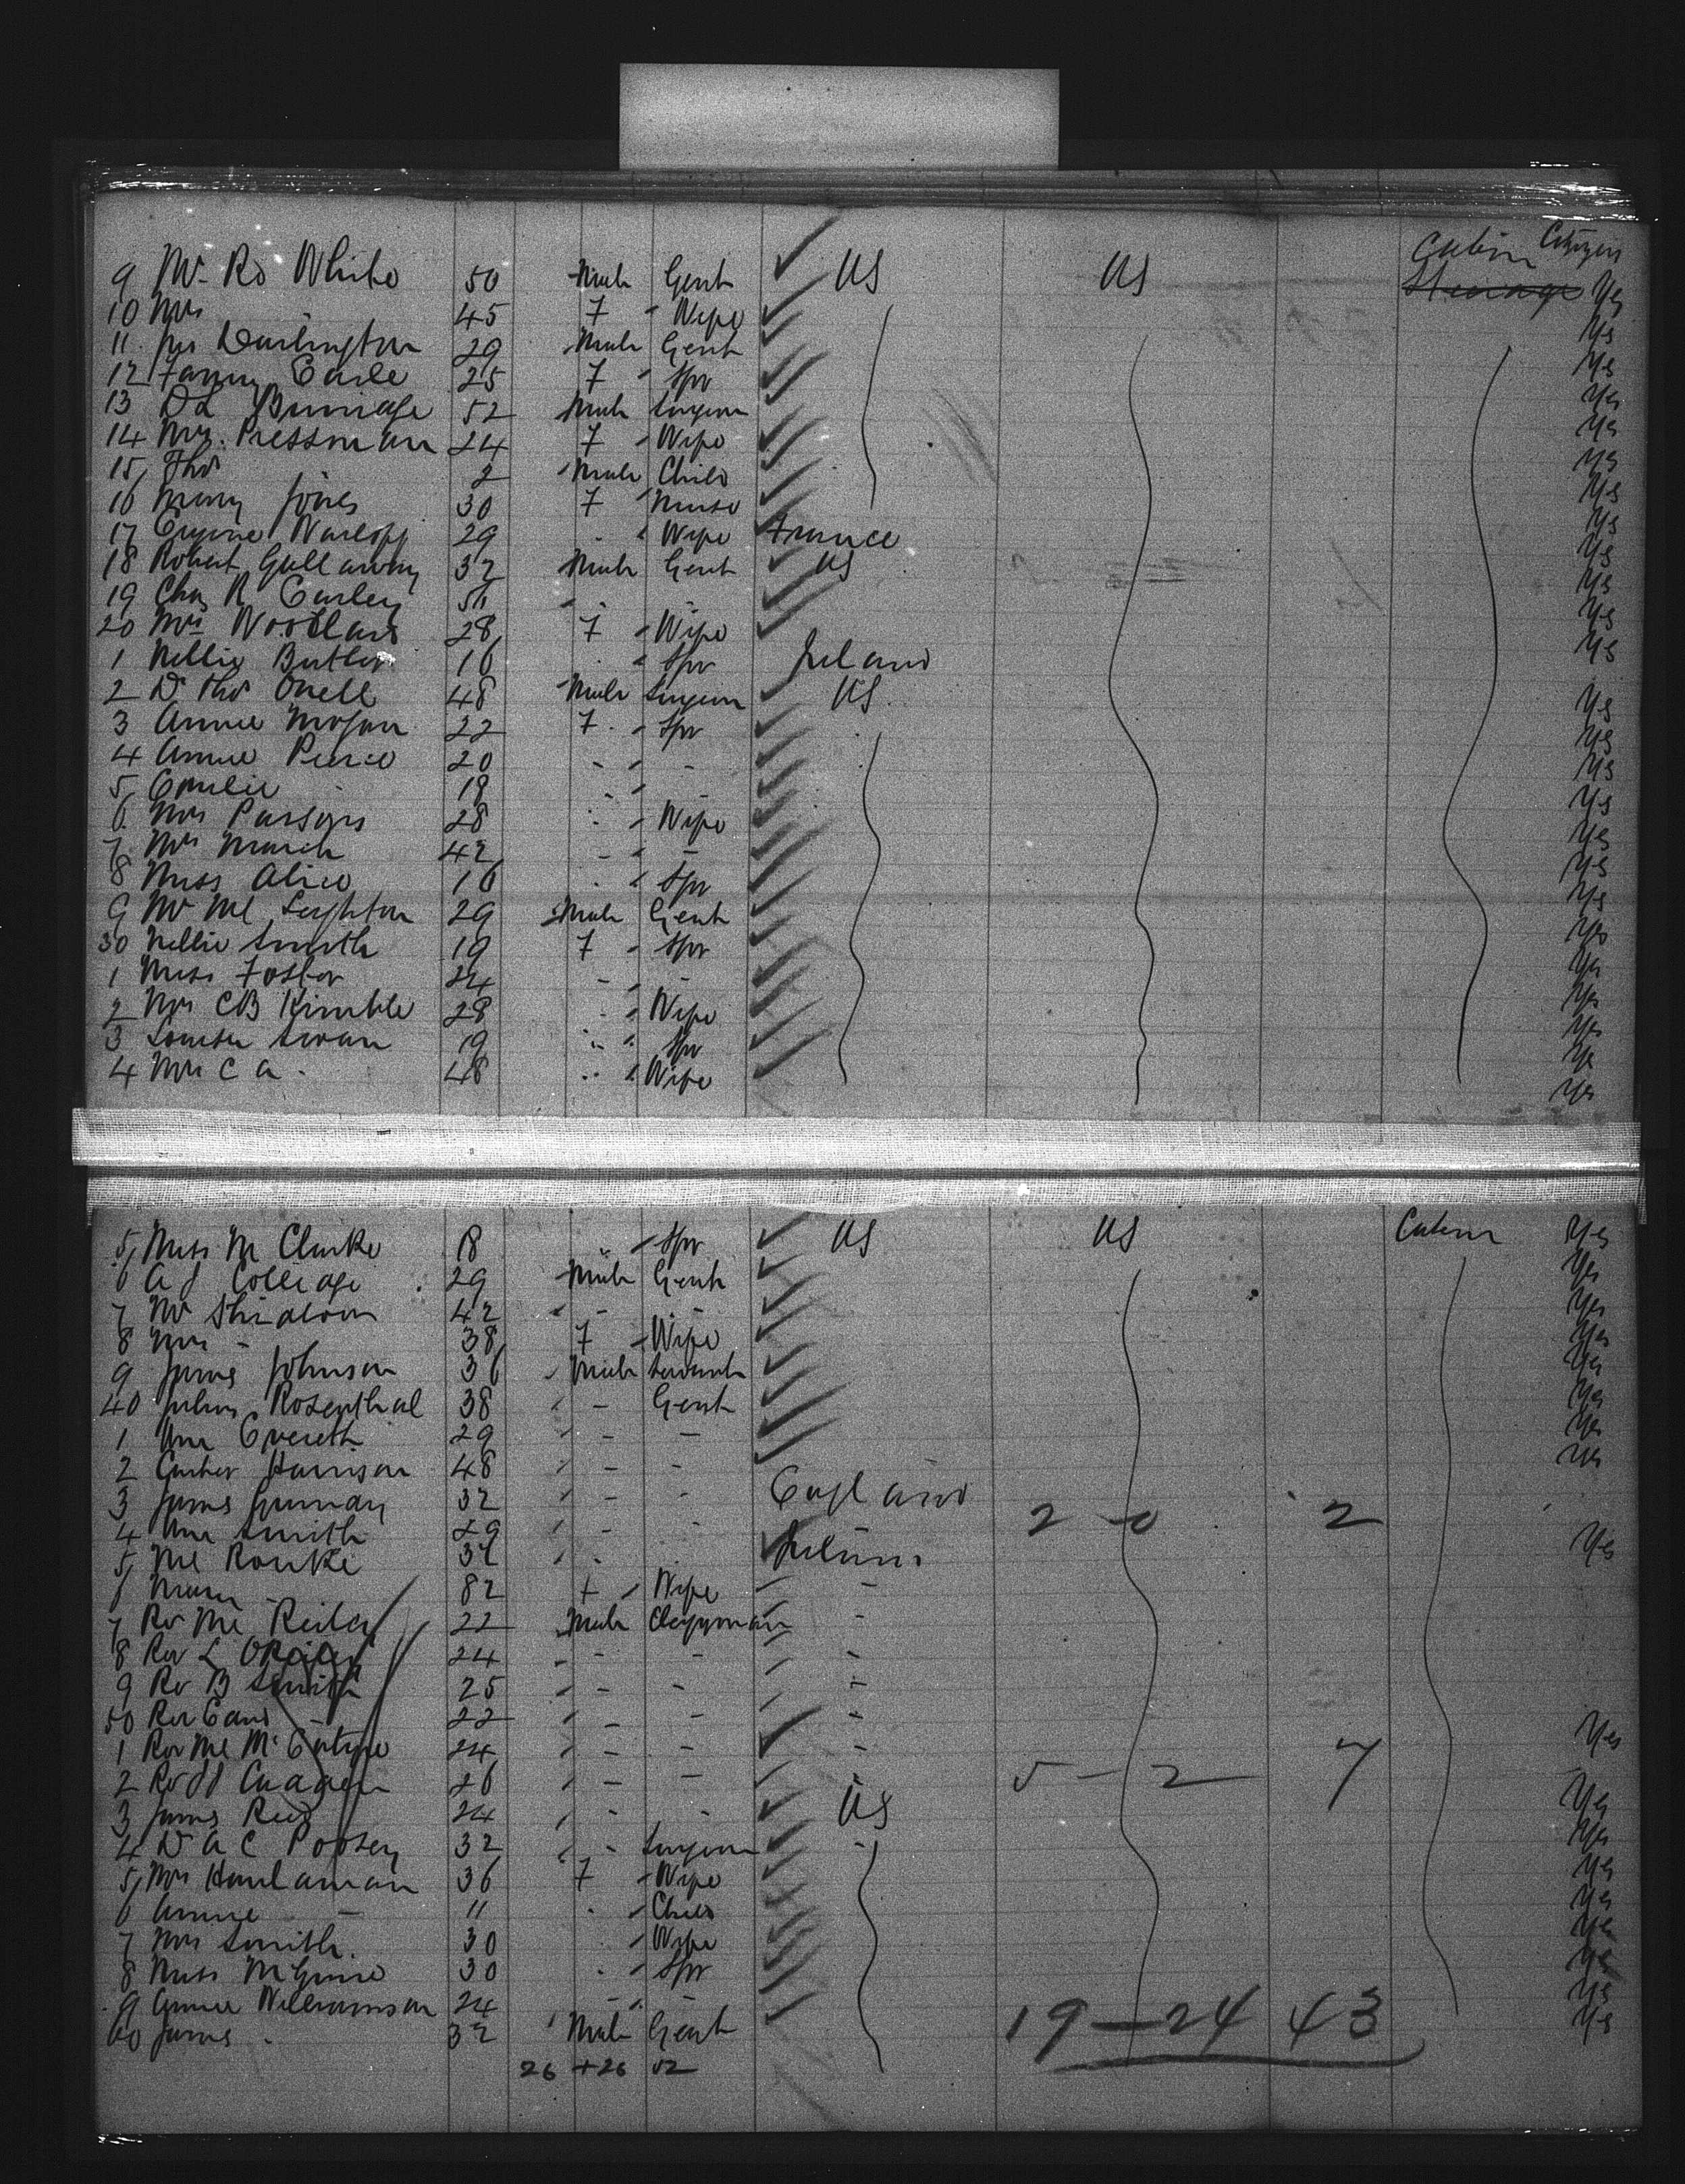 Cabin Citizen
9 Mr Ro White 50 Male Gent US US Steerage Yes
10 Mrs 45 F Wife Yes
11 Jas Darlington 29 Male Gent Yes
12 Fanny Earle 25 F Spr Yes
13 Dr Burridge 52 Male Surgeon Yes
14 Mrs. Pressman 24 F Wife Yes
15 Thos 2 Male Child Yes
16 Mary Jones 30 F Nurse Yes
17 29 " Wife France Yes
18 Robert Gallaway 32 Male Gent US Yes
19 Chas R Earley 56 - - Yes
20 Mrs Woodland 28 F Wife Yes
1 Nellie Butler 16 " Spr Ireland
2 Dr Thos Onell 48 Male Surgeon US Yes
3 Annie Mofan 22 F Spr Yes
4 Annie Pierce 20 - - Yes
5 Emilie 18 - - Yes
6 Mrs Parsons 28 " Wife Yes
7 Mrs March 42 - - Yes
8 Miss Alice 16 " Spr Yes
9 Mr Ml Leighton 29 Male Gent Yes
30 Nellie Smith 19 F Spr Yes
1 Miss Foster 24 - - Yes
2 Mrs CB Kimble 28 " Wife Yes
3 Louisa Swan 19 " Spr Yes
4 Mrs C A - 48 " Wife Yes
5 Miss M Clarke 18 " Spr US US Cabin Yes
6 A J Colledge 29 Male Gent Yes
7 Mr Sheldon 42 - - Yes
8 Mrs - 38 F Wife Yes
9 James Johnson 36 Male Servant Yes
40 Julius Rosenthal 38 - Gent Yes
1 Wm Evereth 29 - - Yes
2 Harrison 48 - - Yes
3 James 32 - - England
4 Wm Smith 29 - - 2 - 0 2
5 Ml Rourke 34 - Ireland Yes
6 82 F Wife -
7 Rv Ml Reiley 22 Male Clergyman -
8 Rev L OReiley 24 - - -
9 Rv B Smith 25 - - -
50 Rev Eans - 22 - - -
1 Rev Ml McEntyre 24 - - - Yes
2 Rv 26 - - " 5 - 2 7
3 James Reid 24 - - US Yes
4 Dr A C Poosey 32 - Surgeon - Yes
5 Mrs Hanlaman 36 F Wife Yes
6 Annie - 11 " Child Yes
7 Mrs Smith 30 " Wife Yes
8 Miss McGuire 30 " Spr Yes
9 Annie Williamson 24 - - Yes
60 James - 32 Male Gent 19 - 24 43 Yes
26 + 26 52